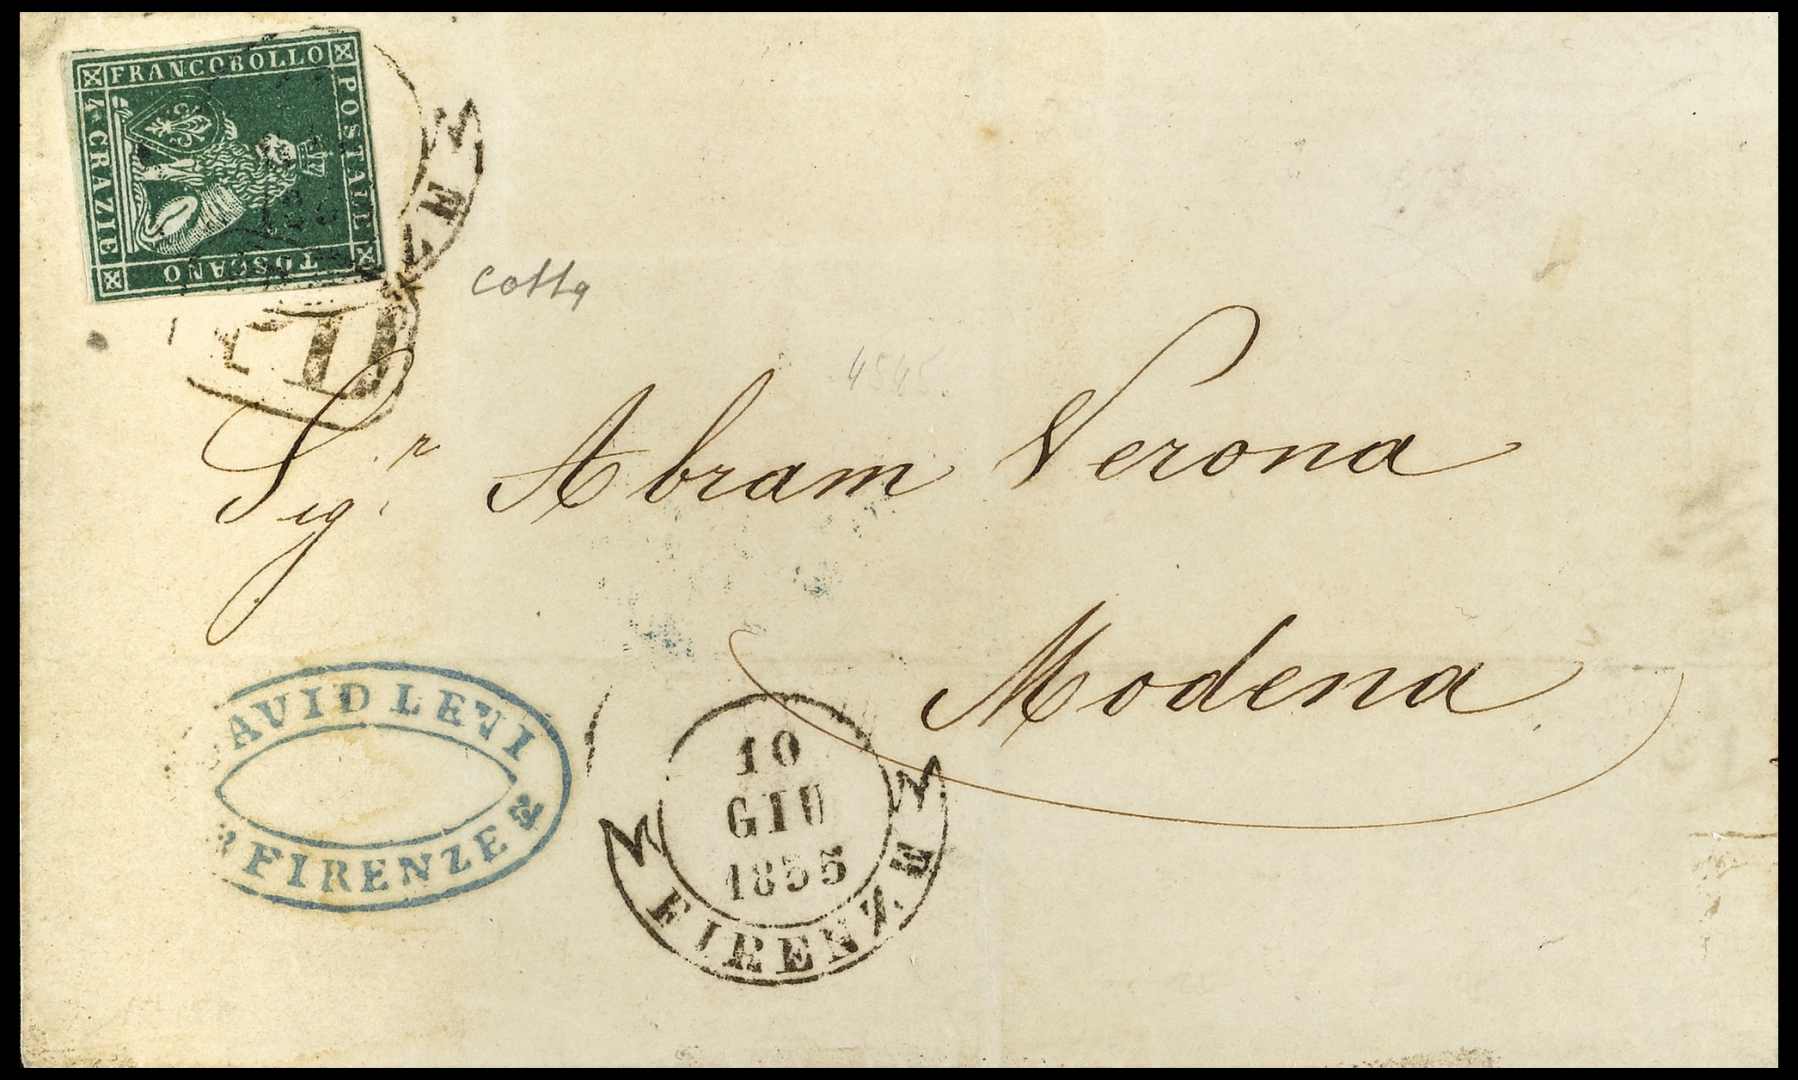 FRANCOBOLLO
POSTALE
TOSCANO
4 CRAZIE
PD
cotta
Sig.r Abram Verona
Modena
DAVID LEVI
FIRENZE
10
GIU
1855
FIRENZE